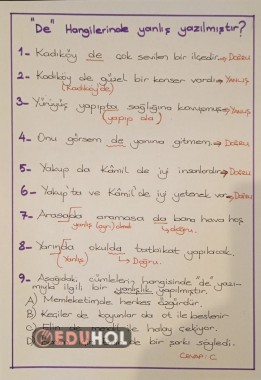 "De" Hangilerinde yanlış yazılmıştır?
1- Kadıköy de çok sevilen bir ilçedir → DOĞRU
2- Kadıköy de güzel bir konser vardı → YANLIŞ
(Kadıköy'de)
3- Yürüyüş yapıpta sağlığına kavuşmuş → YANLIŞ
(yapıp da)
4- Onu görsem de yanına gitmem. → DOĞRU
5- Yakup da Kâmil de iyi insanlardır → DOĞRU
6- Yakup'ta ve Kâmil'de iyi yetenek var → DOĞRU
7- Arasada aramasa da bana hava hoş
yanlış (ayrı) olmalı → doğru.
8- Yarında okulda tatbikat yapılacak.
(Yanlış) → Doğru.
9- Aşağıdaki cümlelerin hangisinde "de" yazımıyla
ilgili bir yanlışlık yapılmıştır.
A) Memleketimde herkes özgürdür.
B) Keçiler de koyunlar da ot ile beslenir
halay çekiyor.
de bir şarkı söyledi.
CEVAP: C
EDUHOL